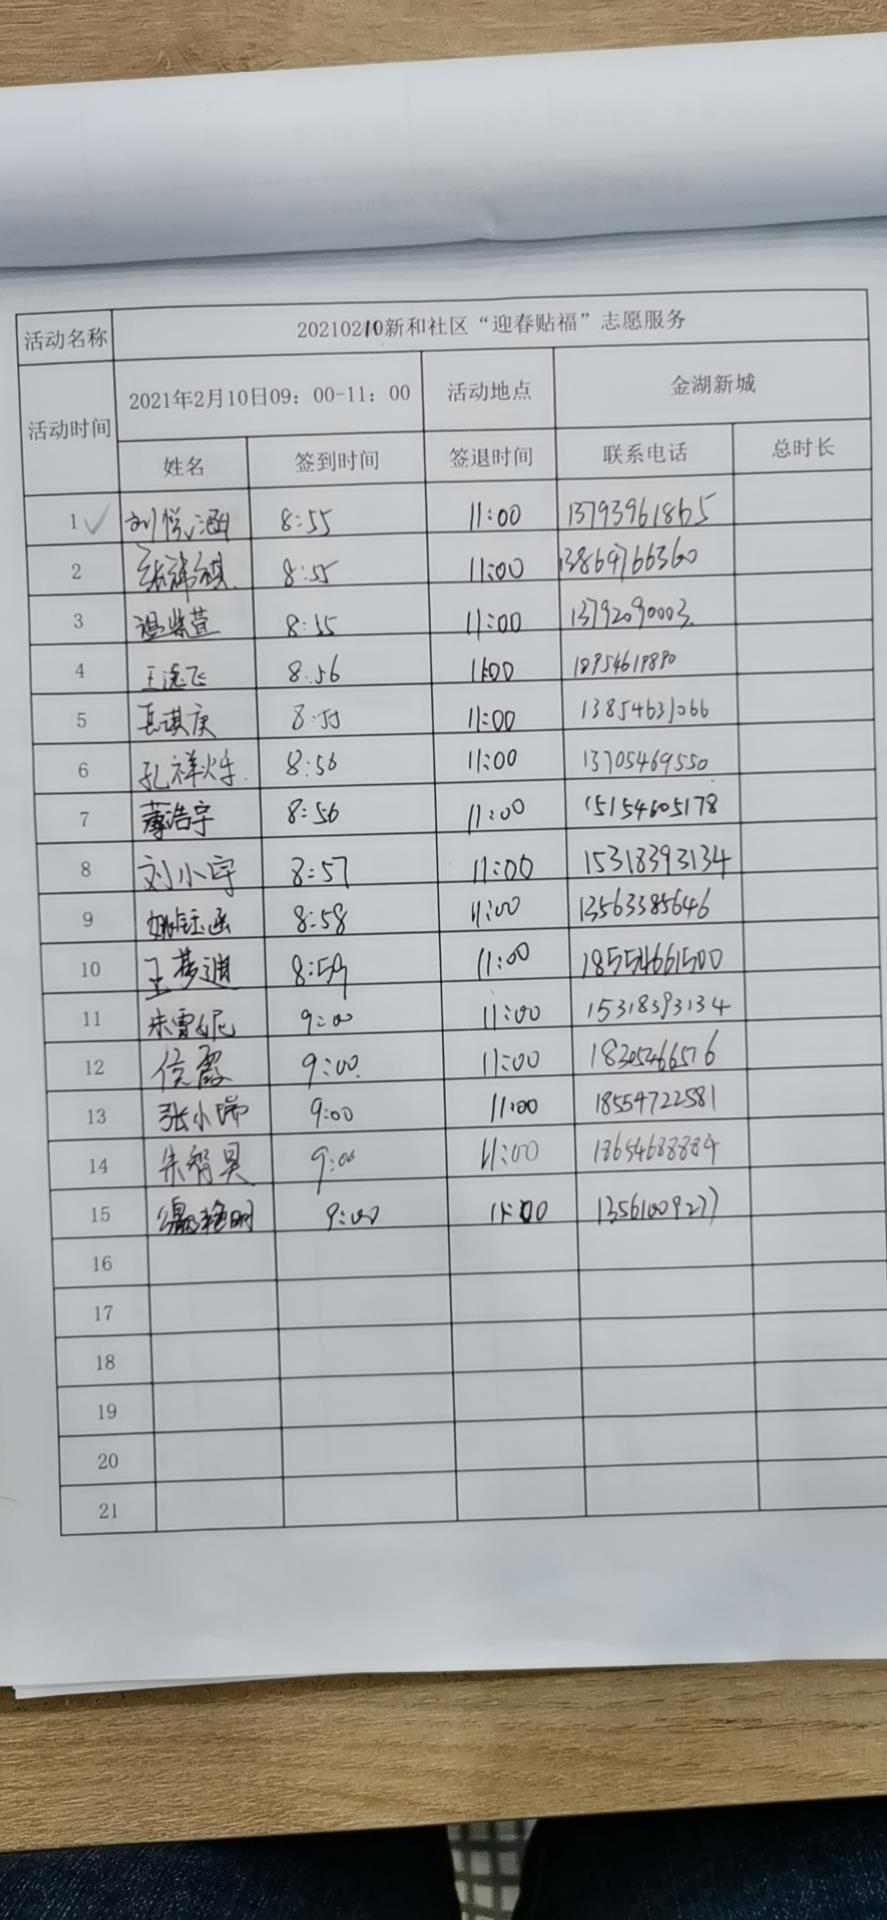 活动名称 20210210新和社区“迎春贴福”志愿服务
活动时间 2021年2月10日09：00-11：00 活动地点 金湖新城
姓名 签到时间 签退时间 联系电话 总时长
1 刘悦涵 8:55 11:00 13793961865
2 张祎祺 8:55 11:00 13864766360
3 温紫萱 8:55 11:00 13792090003
4 王 飞 8:56 11:00 18954619890
5 琪庚 8:55 11:00 13854631066
6 孔祥烨 8:56 11:00 13705469550
7 薄浩宇 8:56 11:00 15154605178
8 刘小宇 8:57 11:00 15318393134
9 姚钰涵 8:58 11:00 13563385646
10 王梦迪 8:59 11:00 18554661500
11 朱雪妮 9:00 11:00 15318393134
12 侯霞 9:00 11:00 18305466576
13 张小瑞 9:00 11:00 18554722581
14 朱智昊 9:00 11:00 18654688884
15 艳明 9:00 11:00 13561009277
16
17
18
19
20
21